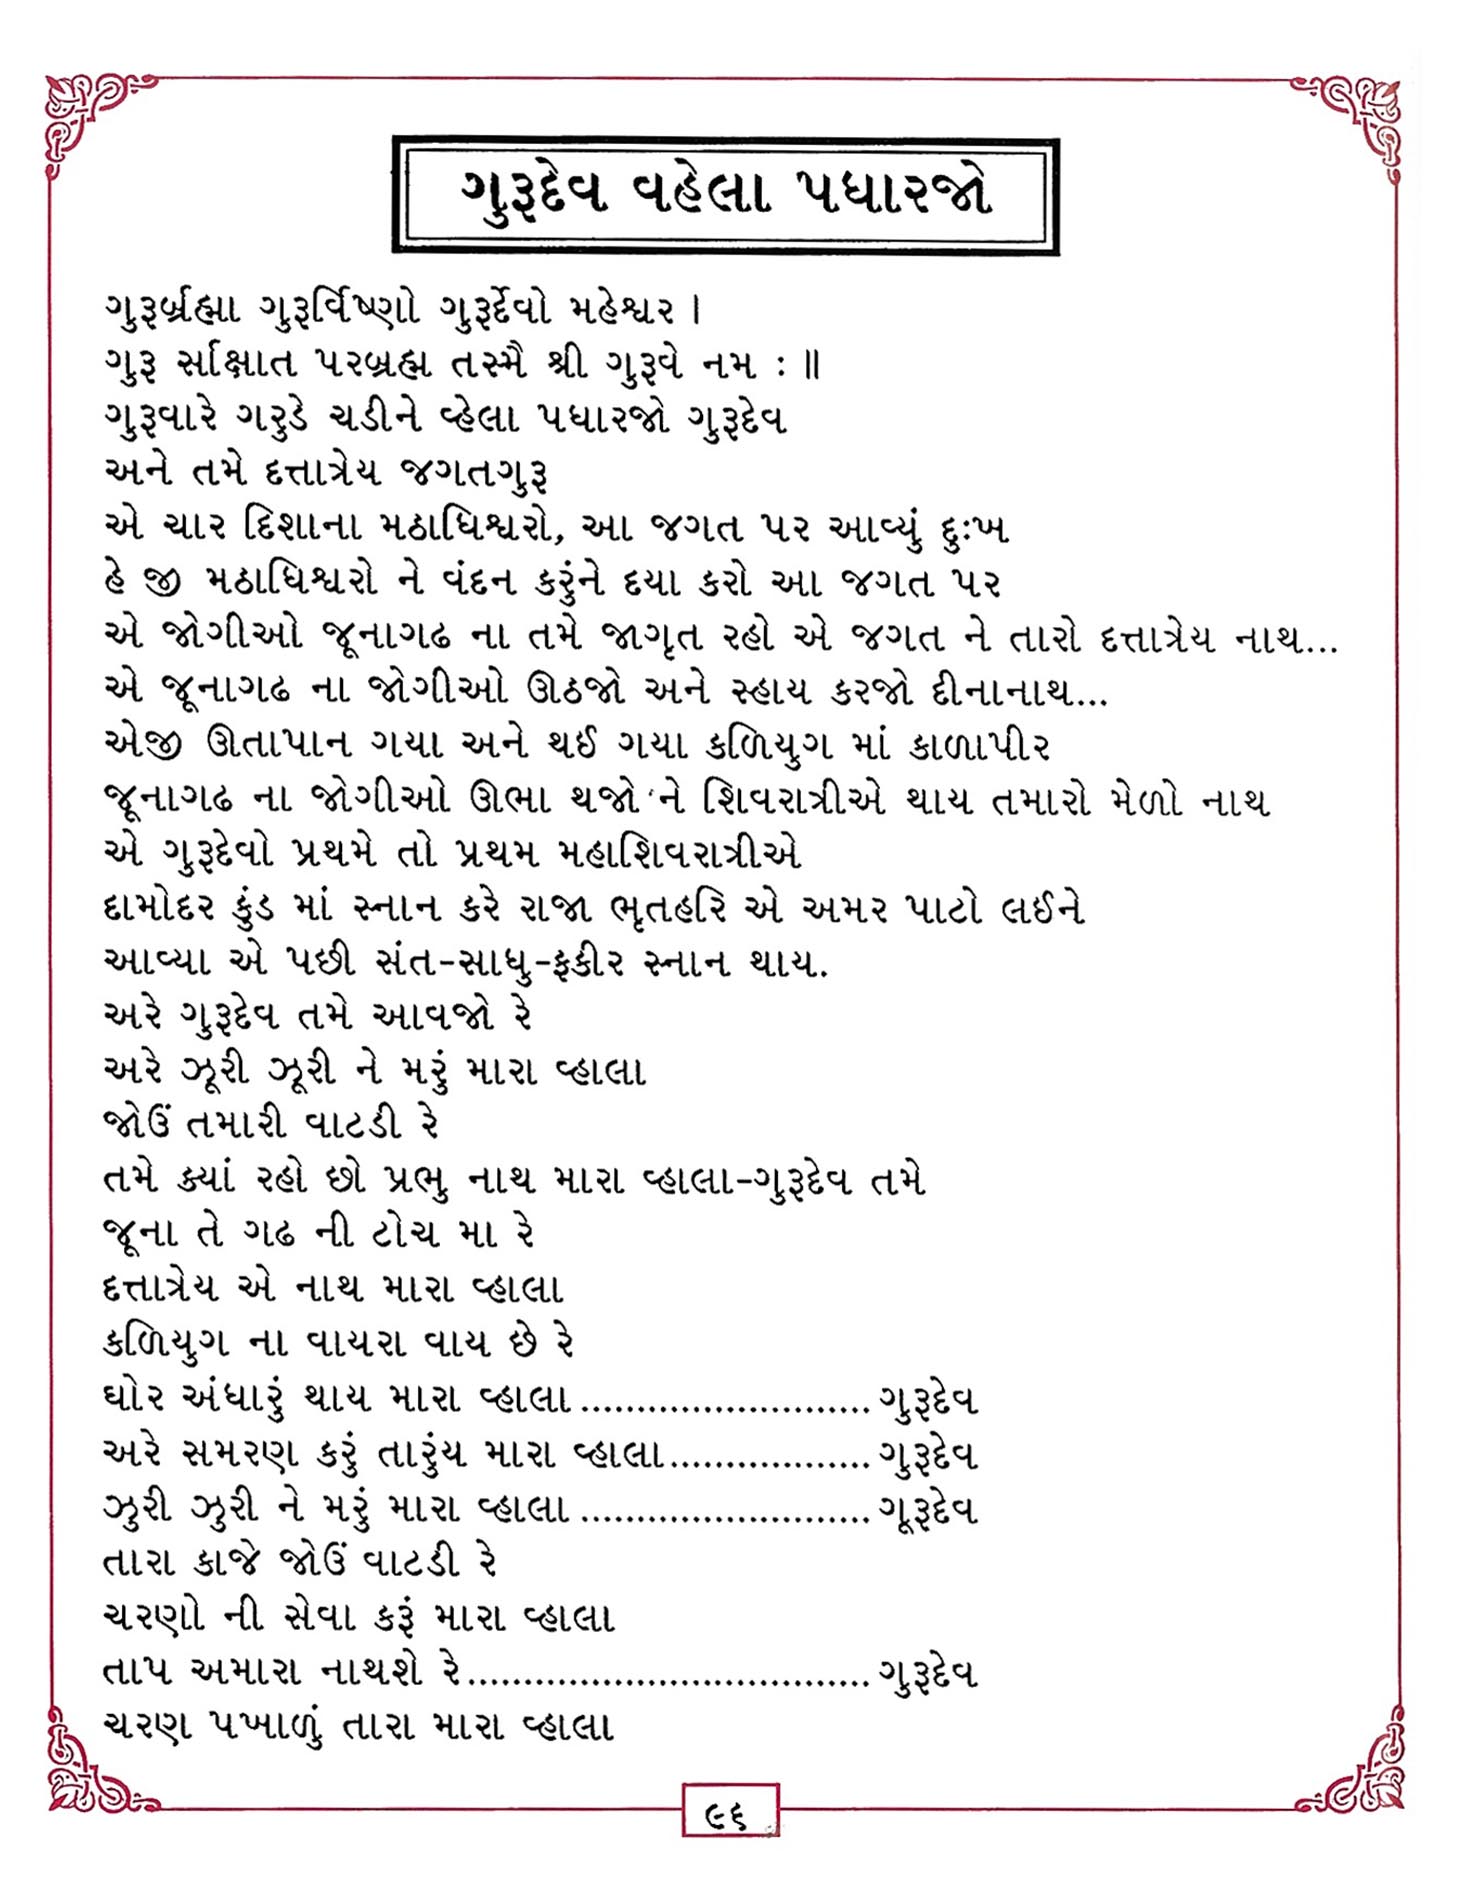 ગુરૂદેવ વહેલા પધારજો
ગુરૂર્બ્રહ્મા ગુરૂર્વિષ્ણો ગુરૂર્દેવો મહેશ્વર ।
ગુરૂ ર્સાક્ષાત પરબ્રહ્મ તસ્મૈ શ્રી ગુરૂવે નમ : ॥
ગુરૂવારે ગરુડે ચડીને વ્હેલા પધારજો ગુરૂદેવ
અને તમે દત્તાત્રેય જગતગુરૂ
એ ચાર દિશાના મઠાધિશ્વરો, આ જગત પર આવ્યું દુઃખ
હે જી મઠાધિશ્વરો ને વંદન કરુંને દયા કરો આ જગત પર
એ જોગીઓ જૂનાગઢ ના તમે જાગૃત રહો એ જગત ને તારો દત્તાત્રેય નાથ...
એ જૂનાગઢ ના જોગીઓ ઊઠજો અને સ્હાય કરજો દીનાનાથ...
એજી ઊતાપાન ગયા અને થઈ ગયા કળિયુગ માં કાળાપીર
જૂનાગઢ ના જોગીઓ ઊભા થજો 'ને શિવરાત્રીએ થાય તમારો મેળો નાથ
એ ગુરૂદેવો પ્રથમે તો પ્રથમ મહાશિવરાત્રીએ
દામોદર કુંડ માં સ્નાન કરે રાજા ભૃતહરિ એ અમર પાટો લઈને
આવ્યા એ પછી સંત-સાધુ-ફકીર સ્નાન થાય.
અરે ગુરૂદેવ તમે આવજો રે
અરે ઝૂરી ઝૂરી ને મરું મારા વ્હાલા
જોઉં તમારી વાટડી રે
તમે ક્યાં રહો છો પ્રભુ નાથ મારા વ્હાલા-ગુરૂદેવ તમે
જૂના તે ગઢ ની ટોચ મા રે
દત્તાત્રેય એ નાથ મારા વ્હાલા
કળિયુગ ના વાયરા વાય છે રે
ઘોર અંધારું થાય મારા વ્હાલા .......................... ગુરૂદેવ
અરે સમરણ કરું તારુંય મારા વ્હાલા.................. ગુરૂદેવ
ઝુરી ઝુરી ને મરું મારા વ્હાલા .......................... ગૂરૂદેવ
તારા કાજે જોઉં વાટડી રે
ચરણો ની સેવા કરૂં મારા વ્હાલા
તાપ અમારા નાથશે રે.................................... ગુરૂદેવ
ચરણ પખાળું તારા મારા વ્હાલા
૯૬